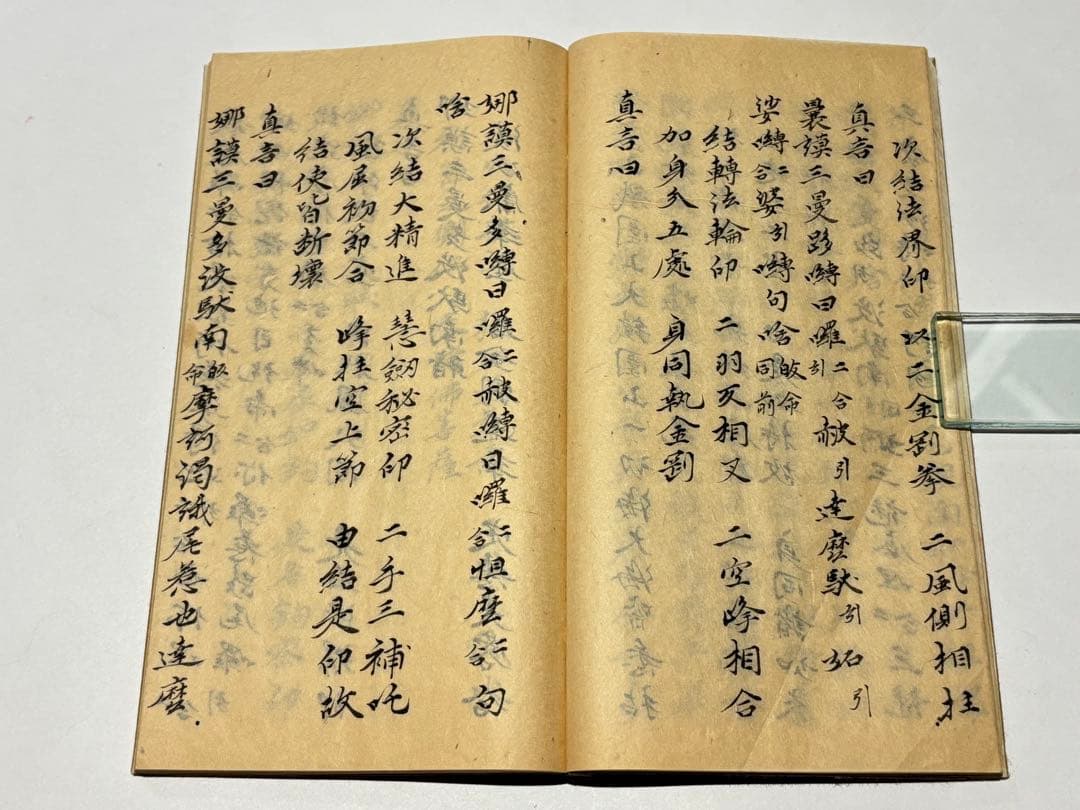 次結法界印 以二金剛拳 二風側相拄
真言曰
曩謨三曼跢嚩曰囉二合引 赧引 達麼馱引 𫰡引
娑嚩二合婆引嚩句 唅皈命同前
結轉法輪印 二羽反相叉 二空峰相合
加身分五處 身同執金剛
真言曰
娜謨三曼多嚩曰囉二合赧嚩日囉二合怛麼二合句
唅
次結大精進 慧劔秘密印 二手三補吒
風屈初節合 峰拄空上節 由結是印故
結使皆断壞
真言曰
娜謨三曼多没馱南皈命摩訶渴誐尾惹也達麼